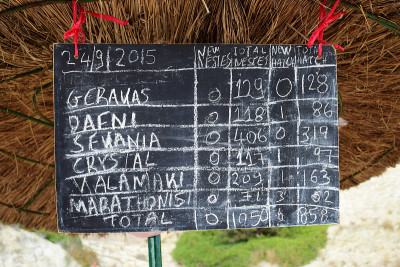 24/9/2015 NEW NESTES TOTAL NESTES NEW HATCH TOTAL HATCH
GERAKAS 0 129 0 128
DAFNI 0 118 1 86
SEKANIA 0 406 0 319
CRYSTAL 0 117 1 97
KALAMAKI 0 209 1 163
MARATHONISI 0 71
TOTAL 0 1050 858